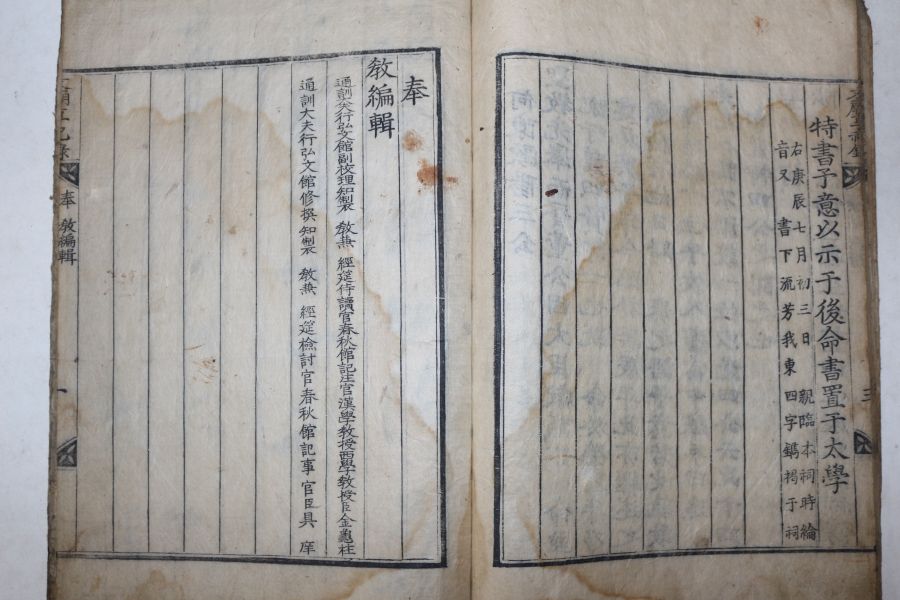 特書予意以示于後命書置于太學
右庚辰七月初三日 親臨本祠時綸
音又 書下流芳我東 四字鐫揭于祠
三
奉
教編輯
通訓大夫行弘文館副校理知製 教兼 經筵侍讀官春秋館記注官漢學教授西學教授臣金龜柱
通訓大夫行弘文館修撰知製 教兼 經筵檢討官春秋館記事官臣具 庠
奉 教編輯
一